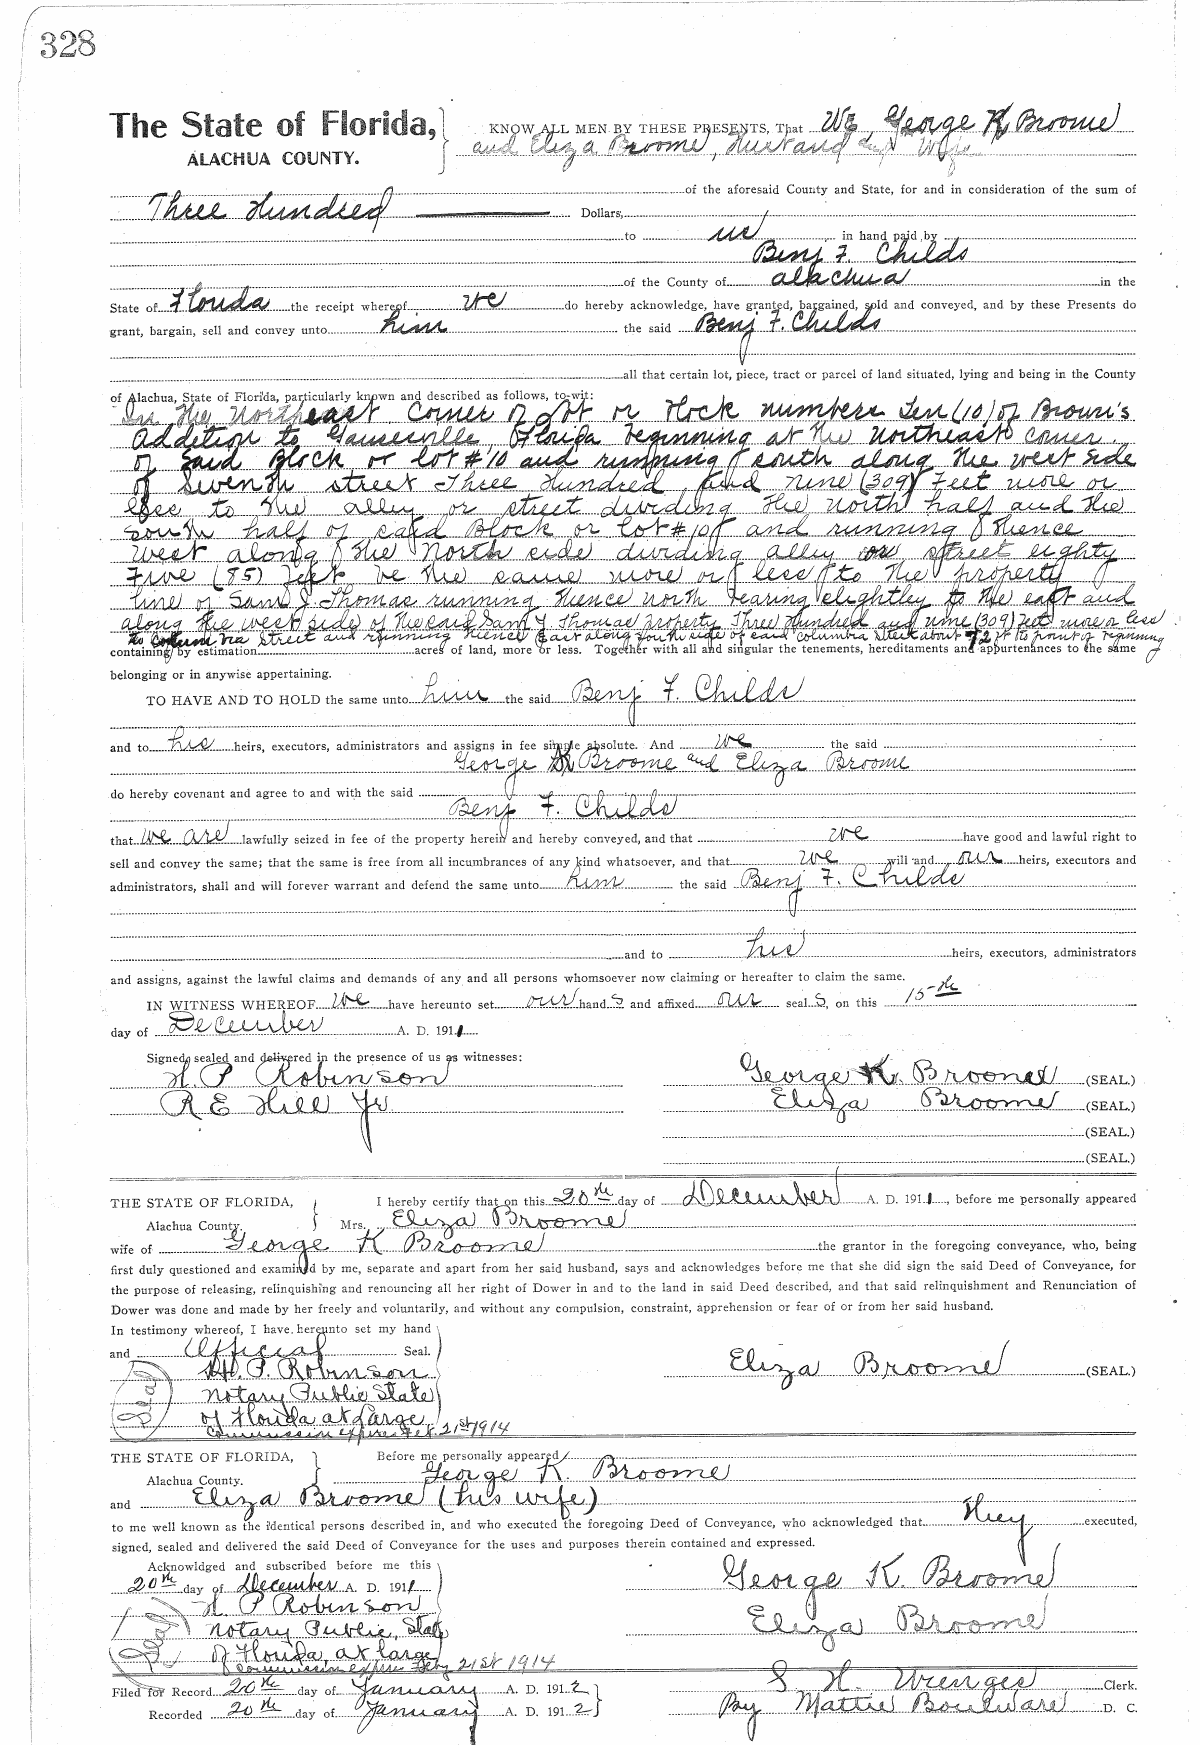 328
The State of Florida, KNOW ALL MEN BY THESE PRESENTS, That We, George K Broome
ALACHUA COUNTY. and Eliza Broome, Husband and Wife
of the aforesaid County and State, for and in consideration of the sum of
Three Hundred Dollars,
to us in hand paid by
Benj F. Childs
of the County of Alachua in the
State of Florida the receipt whereof we do hereby acknowledge, have granted, bargained, sold and conveyed, and by these Presents do
grant, bargain, sell and convey unto him the said Benj F. Childs
all that certain lot, piece, tract or parcel of land situated, lying and being in the County
of Alachua, State of Florida, particularly known and described as follows, to-wit:
In the Northeast Corner of lot or block numbers Ten (10) of Brown's
Addition to Gainesville, Florida beginning at the Northeast corner
of said Block or lot #10 and running south along the west side
of Seventh street Three Hundred and nine (309) Feet more or
less to the alley or street dividing the North half and the
south half of said Block or lot #10 and running thence
west along the North side dividing alley or street eighty
Five (85) feet be the same more or less to the property
line of Sam J. Thomas running thence north bearing slightly to the east and
along the west side of the said Sam J Thomas property Three Hundred and nine (309) feet more or less
to Columbia Street and running thence East along south side of said Columbia street about 72 ft to point of beginning
containing by estimation acres of land, more or less. Together with all and singular the tenements, hereditaments and appurtenances to the same
belonging or in anywise appertaining.
TO HAVE AND TO HOLD the same unto him the said Benj F. Childs
and to his heirs, executors, administrators and assigns in fee simple absolute. And we the said
George K Broome and Eliza Broome
do hereby covenant and agree to and with the said
Benj F. Childs
that we are lawfully seized in fee of the property herein and hereby conveyed, and that we have good and lawful right to
sell and convey the same; that the same is free from all incumbrances of any kind whatsoever, and that we will and our heirs, executors and
administrators, shall and will forever warrant and defend the same unto him the said Benj F. Childs
and to his heirs, executors, administrators
and assigns, against the lawful claims and demands of any and all persons whomsoever now claiming or hereafter to claim the same.
IN WITNESS WHEREOF we have hereunto set our hand s and affixed our seal s, on this 15th
day of December A. D. 1911
Signed, sealed and delivered in the presence of us as witnesses:
H. P Robinson George K. Broome (SEAL.)
R E Hill Jr. Eliza Broome (SEAL.)
(SEAL.)
(SEAL.)
THE STATE OF FLORIDA, I hereby certify that on this 20th day of December A. D. 1911, before me personally appeared
Alachua County. Mrs. Eliza Broome
wife of George K Broome the grantor in the foregoing conveyance, who, being
first duly questioned and examined by me, separate and apart from her said husband, says and acknowledges before me that she did sign the said Deed of Conveyance, for
the purpose of releasing, relinquishing and renouncing all her right of Dower in and to the land in said Deed described, and that said relinquishment and Renunciation of
Dower was done and made by her freely and voluntarily, and without any compulsion, constraint, apprehension or fear of or from her said husband.
In testimony whereof, I have hereunto set my hand
and Official Seal.
H. P. Robinson Eliza Broome (SEAL)
(Seal) Notary Public State
of Florida at Large
Commission expires Feb. 21st 1914
THE STATE OF FLORIDA, Before me personally appeared
Alachua County. George K. Broome
and Eliza Broome (his wife)
to me well known as the identical persons described in, and who executed the foregoing Deed of Conveyance, who acknowledged that They executed,
signed, sealed and delivered the said Deed of Conveyance for the uses and purposes therein contained and expressed.
Acknowldged and subscribed before me this
20th day of December A. D. 1911 George K. Broome
H. P Robinson Eliza Broome
(Seal) Notary Public, State
of Florida, at large
Commission expires Feby 21st 1914
Filed for Record 20th day of January A. D. 1912 S H. Wienges Clerk.
Recorded 20th day of January A. D. 1912 By Mattie Boulware D. C.